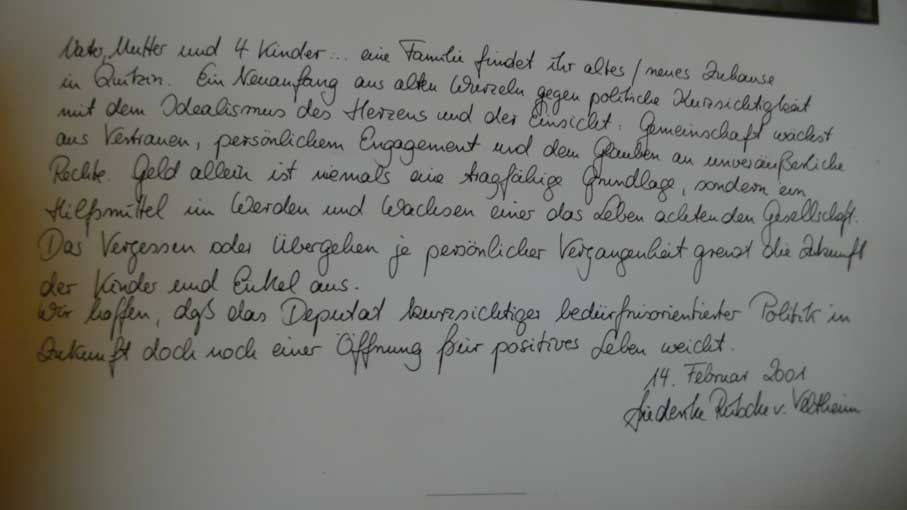 Vater, Mutter und 4 Kinder... eine Familie findet ihr altes/neues Zuhause
in Quitzin. Ein Neuanfang aus alten Wurzeln gegen politische Kurzsichtigkeit
mit dem Idealismus des Herzens und der Einsicht: Gemeinschaft wächst
aus Vertrauen, persönlichem Engagement und dem Glauben an unveräußerliche
Rechte. Geld allein ist niemals eine tragfähige Grundlage, sondern ein
Hilfsmittel im Werden und Wachsen einer das Leben achtenden Gesellschaft.
Das Vergessen oder Übergehen je persönlicher Vergangenheit grenzt die Zukunft
der Kinder und Enkel aus.
Wir hoffen, daß das Deputat kurzsichtiger bedürfnisorientierter Politik in
Zukunft doch noch einer Öffnung für positives Leben weicht.
14. Februar 2001
Friederike Rübcke v. Veltheim